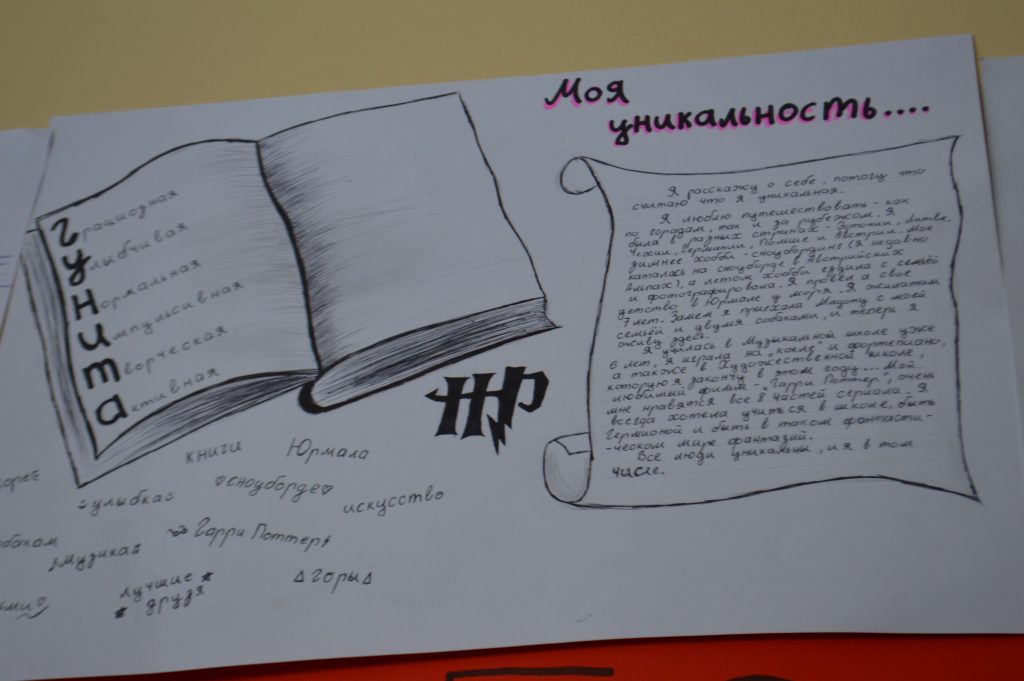 Моя
уникальность....
Грациозная
Улыбчивая
Нормальная
Импульсивная
Творческая
Активная
Я расскажу о себе, потому что
считаю что я уникальная.
Я люблю путешествовать - как
по городам, так и за рубежом. Я
была в разных странах - Эстонии, Литве,
Чехии, Германии, Польше и Австрии. Мое
зимнее хобби - сноубординг (я недавно
каталась на сноуборде в Австрийских
Альпах), а летом хобби ездила с семьёй
и фотографировала. Я провела свое
детство в Юрмале у моря. Я жила там
7 лет. Затем я приехала Мадону с моей
семьёй и двумя собаками, и теперь я
живу здесь.
Я училась в Музыкальной школе уже
6 лет, я играла на "кокле" и фортепиано,
а также в Художественной школе,
которую я закончу в этом году... Мой
любимый фильм - "Гарри Поттер", очень
мне нравятся все 8 частей сериала. Я
всегда хотела учиться в школе, быть
Гермионой и быть в таком фантасти-
-ческом мире фантазий.
Все люди уникальны, и я в том
числе.
HP
книги
Юрмала
улыбка
сноуборде
искусство
Музыка
Гарри Поттер
лучшие
друзя
горы